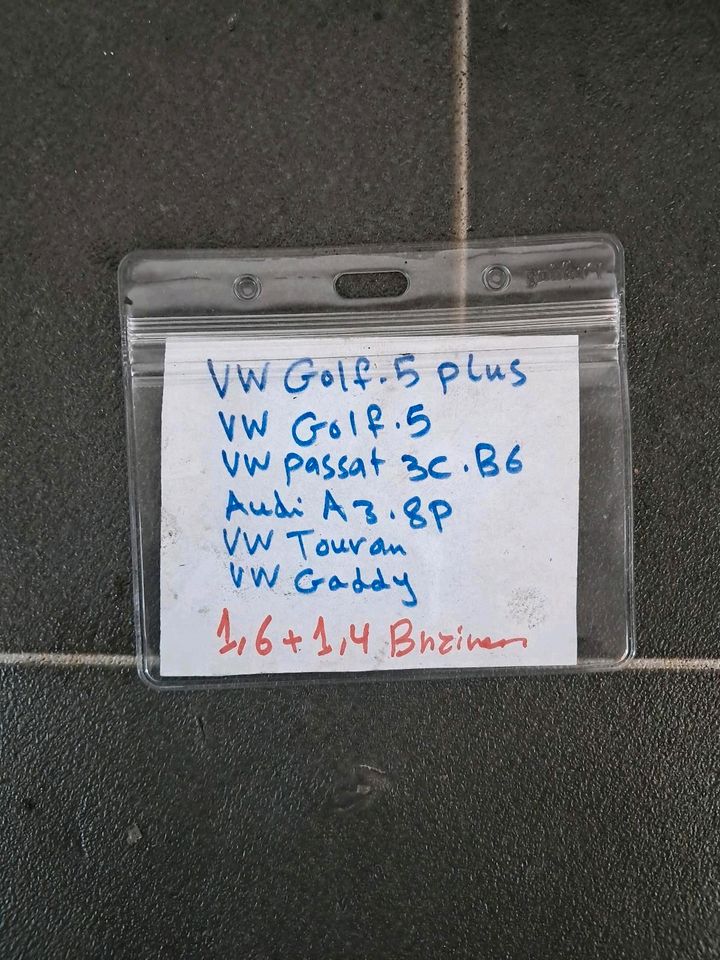 VW Golf.5 plus
VW Golf.5
VW passat 3C.B6
Audi A3.8P
VW Touran
VW Gaddy
1,6+1,4